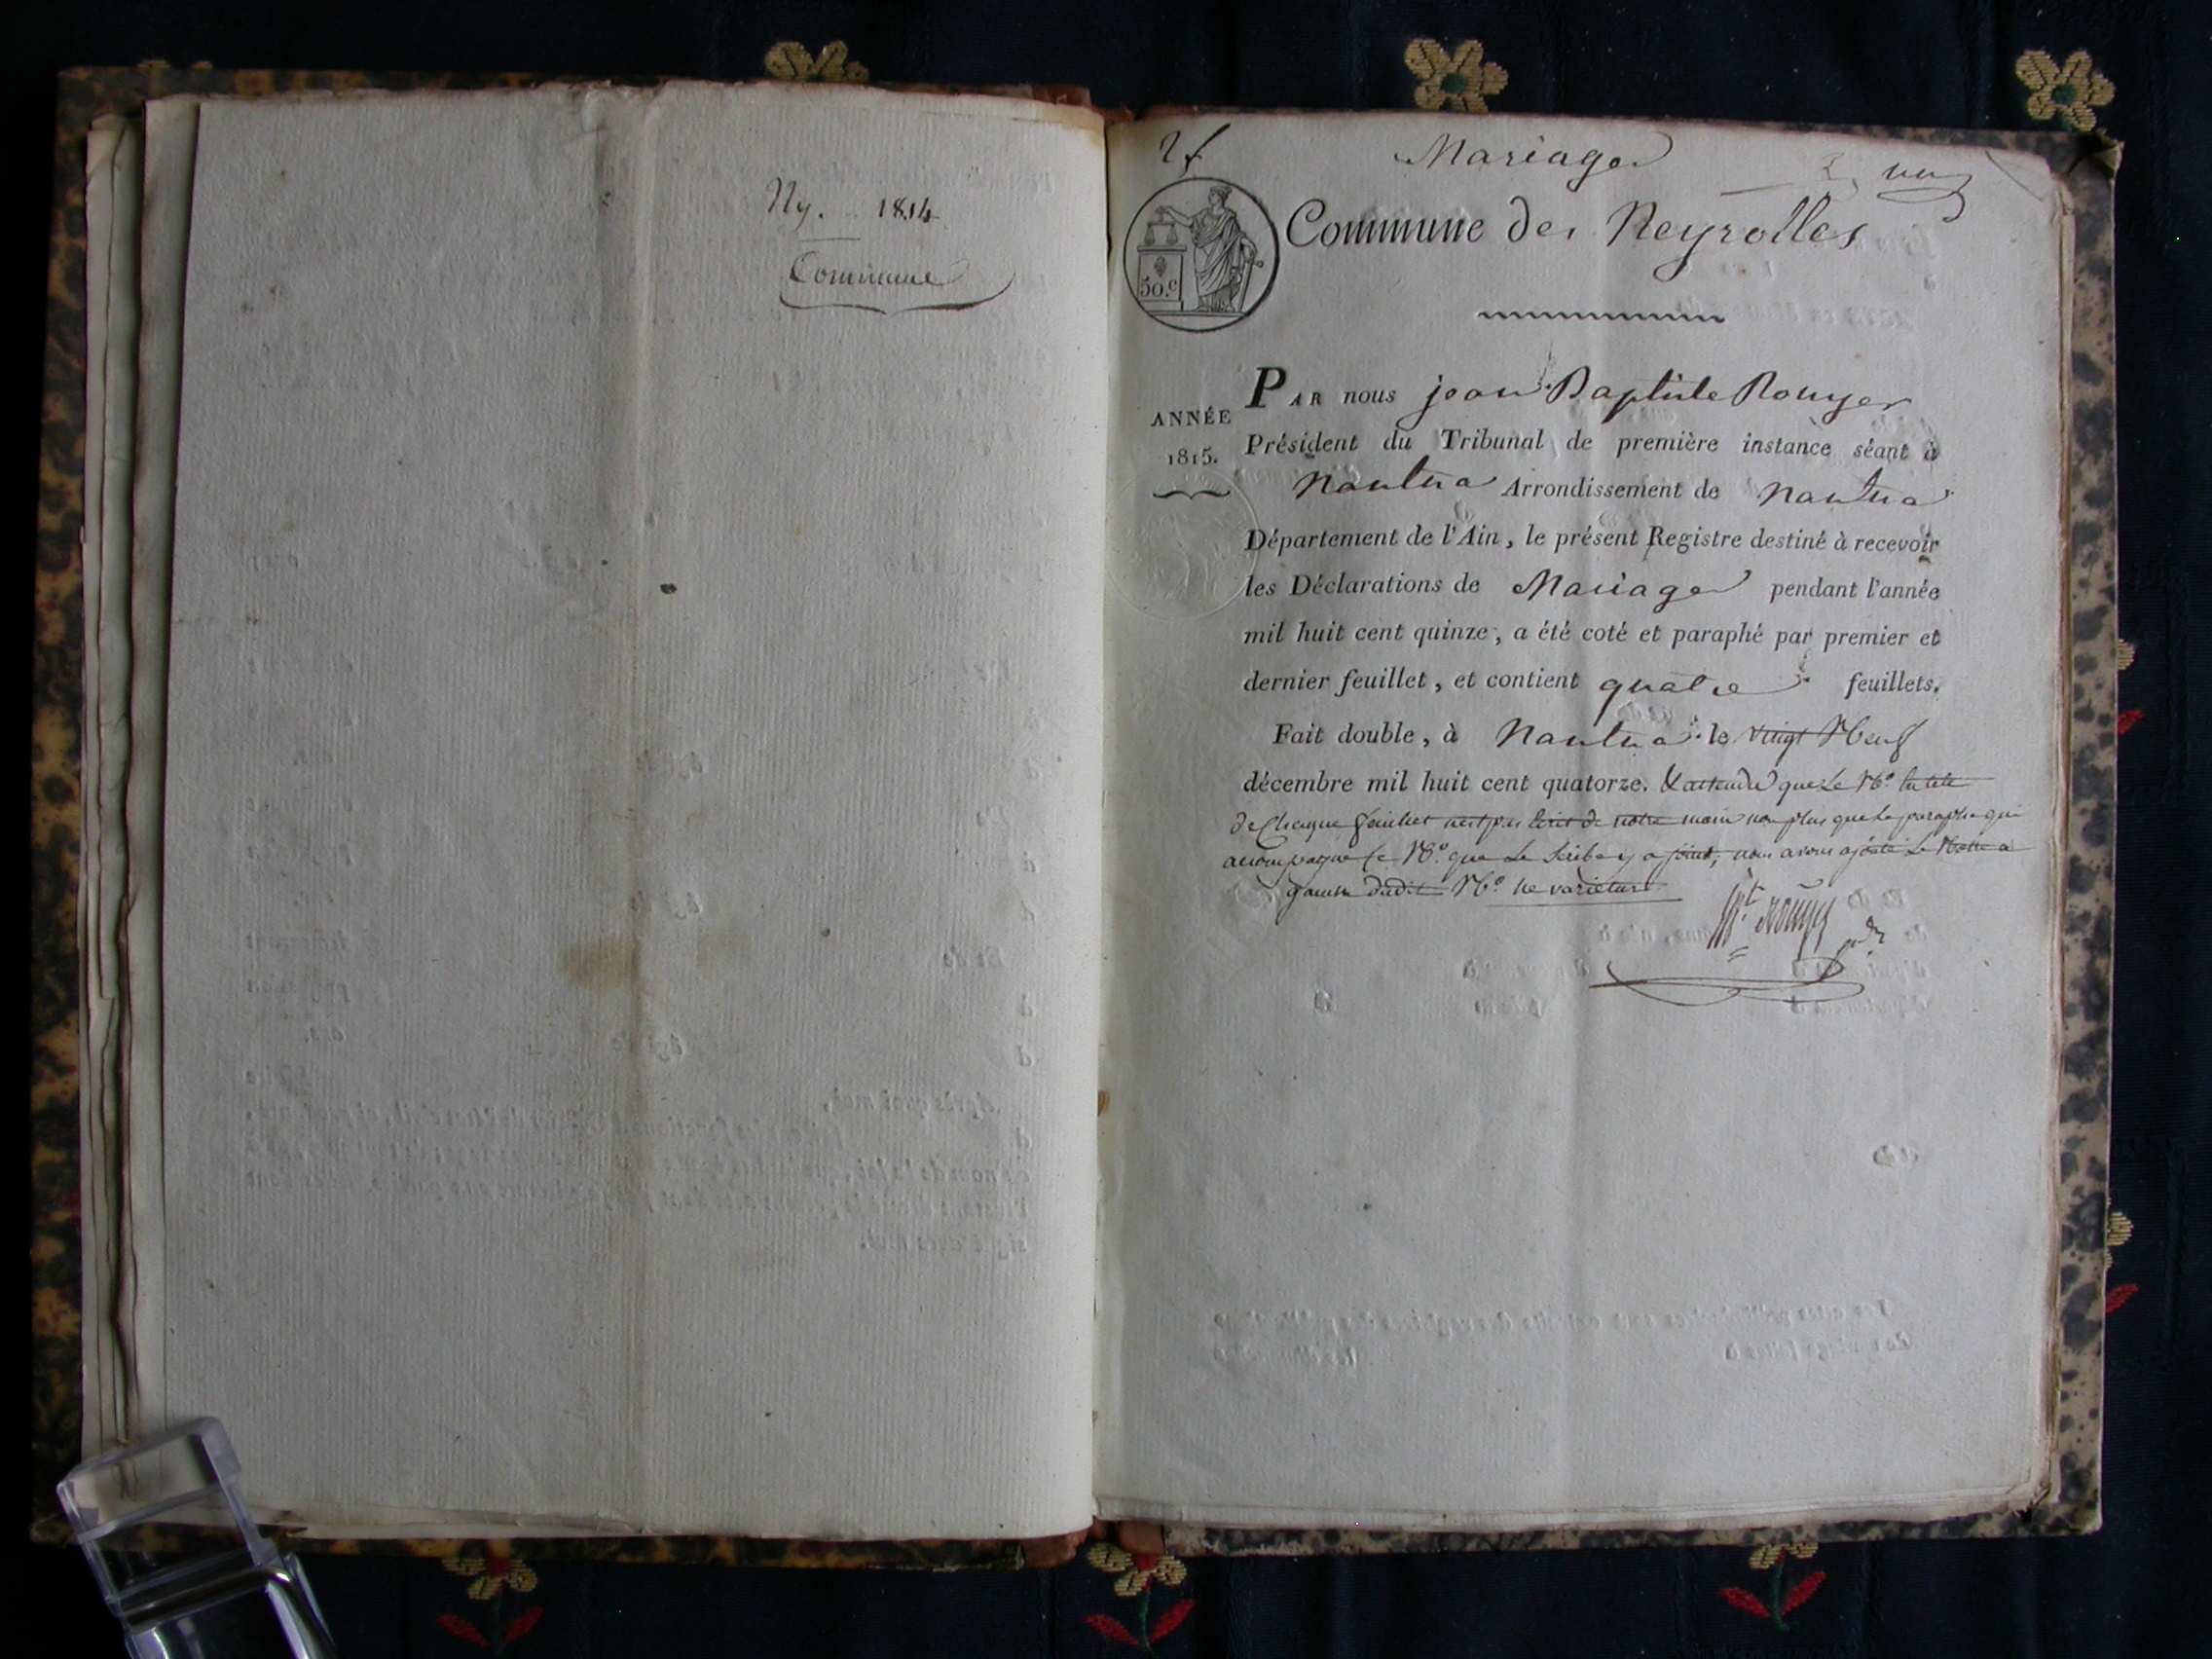 Ny. 1814
Commune
2 f
Mariages
un
Commune des Neyrolles
50.c
ANNÉE
1815.
PAR nous jean Baptiste Rouyer
Président du Tribunal de première instance séant à
Nantua Arrondissement de Nantua
Département de l'Ain, le présent Registre destiné à recevoir
les Déclarations de Mariages pendant l'année
mil huit cent quinze, a été coté et paraphé par premier et
dernier feuillet, et contient quatre feuillets.
Fait double, à Nantua le vingt Neuf
décembre mil huit cent quatorze. & attendu que Le No
de Chaque feuillet n'est pas Ecrit de notre main non plus que Le paraphe qui
accompagne Le No. que Le Scribe y a joint, nous avons ajouté Le Notre a
gauche dudit No. ne varietur
Rouyer